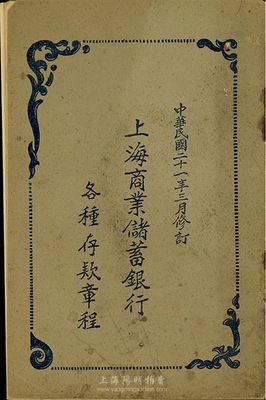 中華民國二十一年三月修訂
上海商業儲蓄銀行
各種存款章程
上海陽明拍賣
www.yangmingauction.com